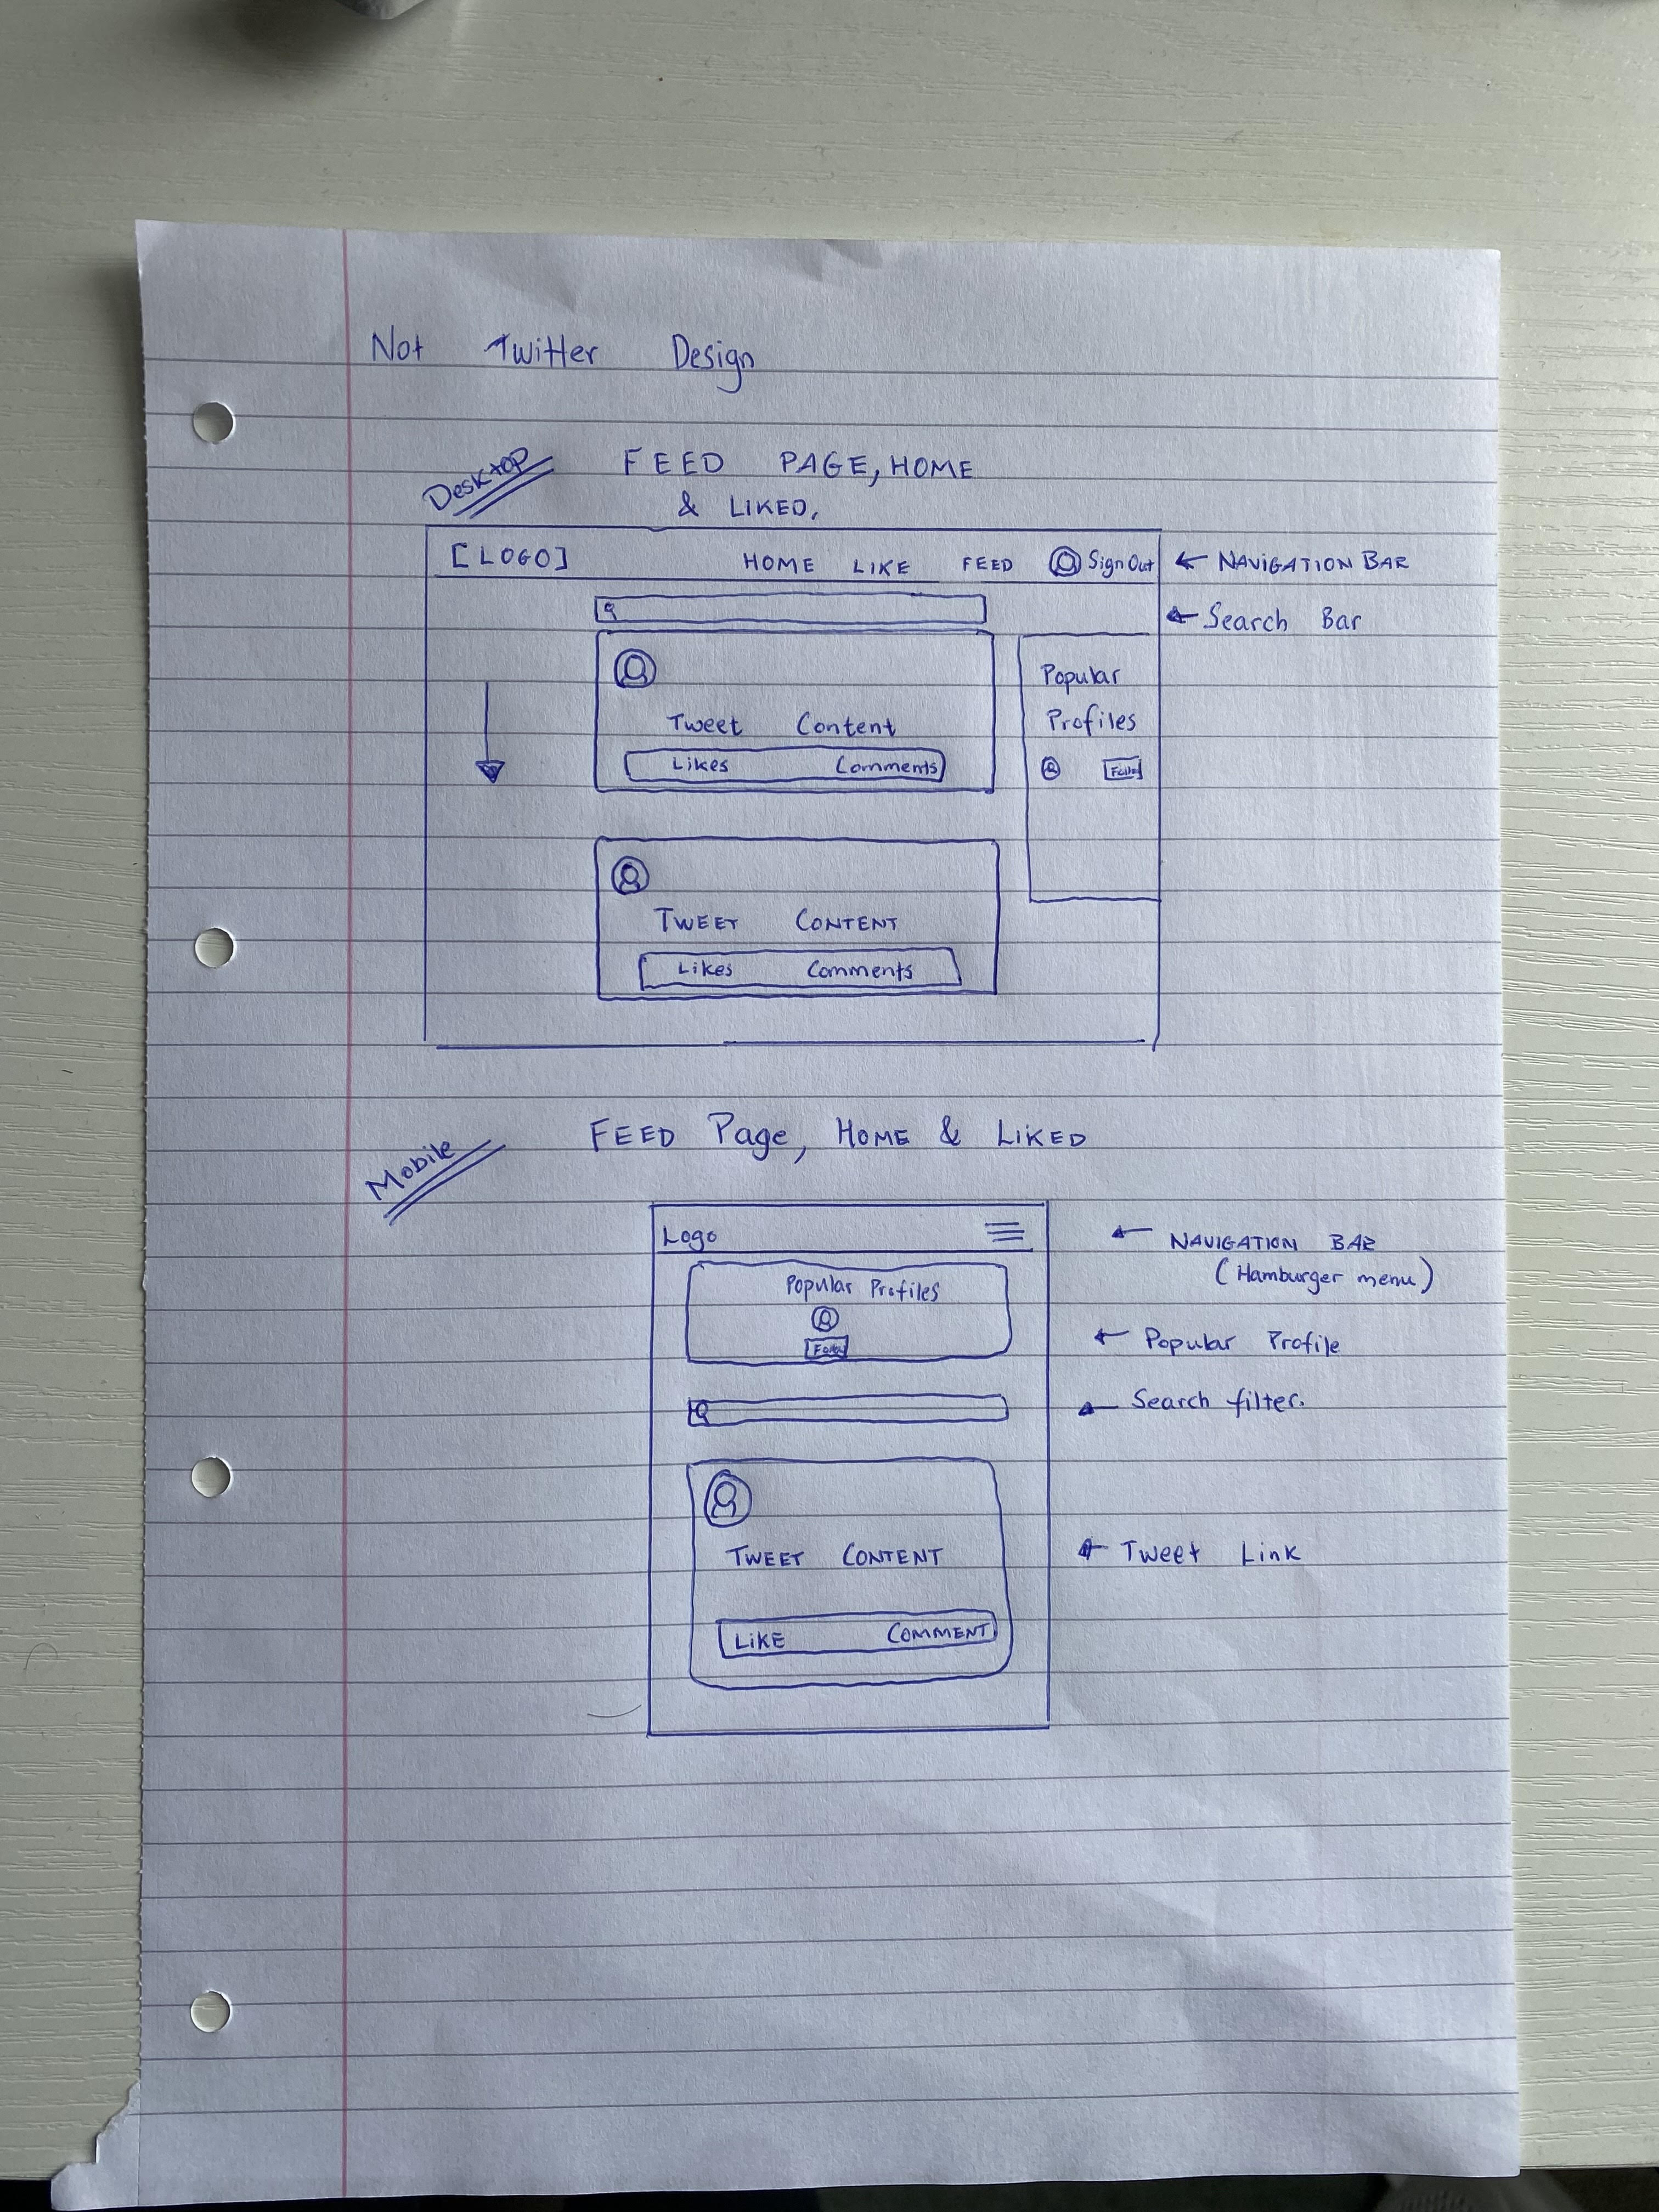 Not Twitter Design
Desktop
FEED PAGE, HOME
& LIKED,
[LOGO] HOME LIKE FEED Sign Out ← NAVIGATION BAR
← Search Bar
Popular
Profiles
Tweet Content
Likes Comments
TWEET CONTENT
Likes Comments
Mobile
FEED Page, HOME & LIKED
Logo
← NAVIGATION BAR
(Hamburger menu)
Popular Profiles
← Popular Profile
← Search filter.
TWEET CONTENT
← Tweet Link
LIKE COMMENT